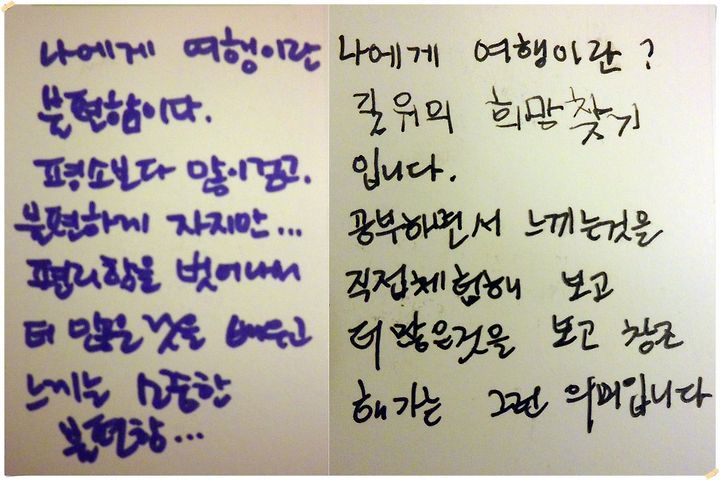 나에게 여행이란
불편함이다.
평소보다 많이 걷고.
불편하게 자지만...
편리함을 벗어나서
더 많은것을 배우고
느끼는 소중한
불편함...
나에게 여행이란?
길위의 희망찾기
입니다.
공부하면서 느끼는것을
직접체험해 보고
더 많은것을 보고 창조
해가는 그런 의미입니다